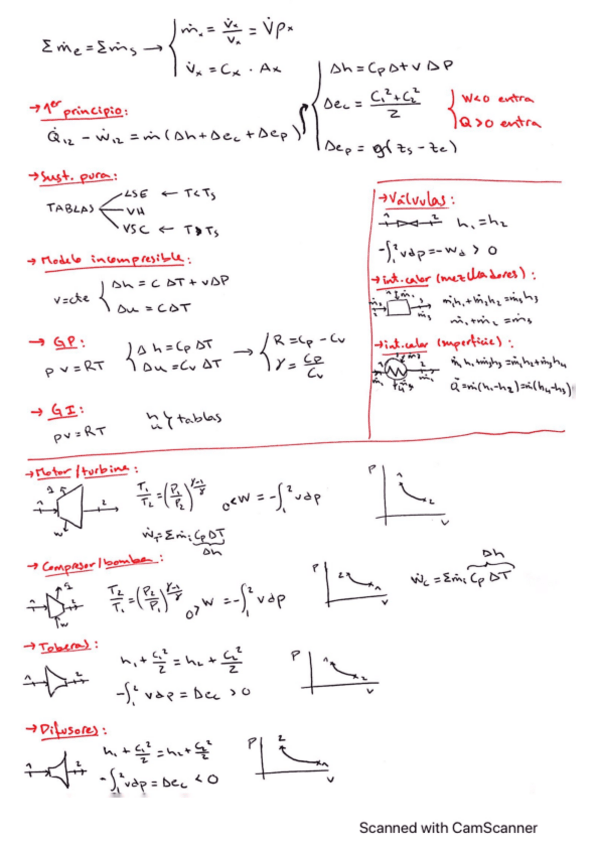 Σṁe = Σṁs → { ṁx = V̇x/vx = V̇ρx
V̇x = Cx · Ax
→ 1er principio:
Q̇12 - Ẇ12 = ṁ(Δh + Δec + Δep)
Δh = CpΔt + vΔP
Δec = (C1² + C2²)/2
Δep = g(zs - ze)
W<0 entra
Q>0 entra
→ Sust. pura:
TABLAS
LSE ← T<Ts
VH
VSC ← T>Ts
→ Modelo incompresible:
v=cte { Δh = C ΔT + vΔP
Δu = CΔT
→ GP:
pv = RT { Δh = Cp ΔT
Δu = Cv ΔT
→ { R = Cp - Cv
γ = Cp/Cv
→ GI:
pv = RT
h
u } tablas
→ Válvulas:
1 2 h1 = h2
-∫₁² vdp = -wd > 0
→ int.calor (mezcladores):
ṁ1h1 + ṁ2h2 = ṁ3h3
ṁ1 + ṁ2 = ṁ3
→ int.calor (superficie):
ṁ1h1 + ṁ3h3 = ṁ2h2 + ṁ4h4
Q̇ = ṁ(h1-h2) = ṁ(h4-h3)
→ Motor/turbina:
T1/T2 = (P1/P2)^(γ-1/γ) 0<w = -∫₁² vdp
Ẇt = Σṁi CpΔT
Δh
P 1 2 v
→ Compresor/bomba:
T2/T1 = (P2/P1)^(γ-1/γ) 0>w = -∫₁² vdp
P 2 1 v
Δh
Ẇc = Σṁi Cp ΔT
→ Toberas:
h1 + C1²/2 = h2 + C2²/2
-∫₁² vdp = Δec > 0
P 1 2 v
→ Difusores:
h1 + C1²/2 = h2 + C2²/2
-∫₁² vdp = Δec < 0
P 2 1 v
Scanned with CamScanner